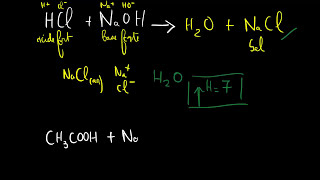 H+ Cl- Na+ HO-
HCl + NaOH → H₂O + NaCl
acide fort base forte sel
NaCl(aq) Na+ Cl- H₂O pH = 7
CH₃COOH + Na